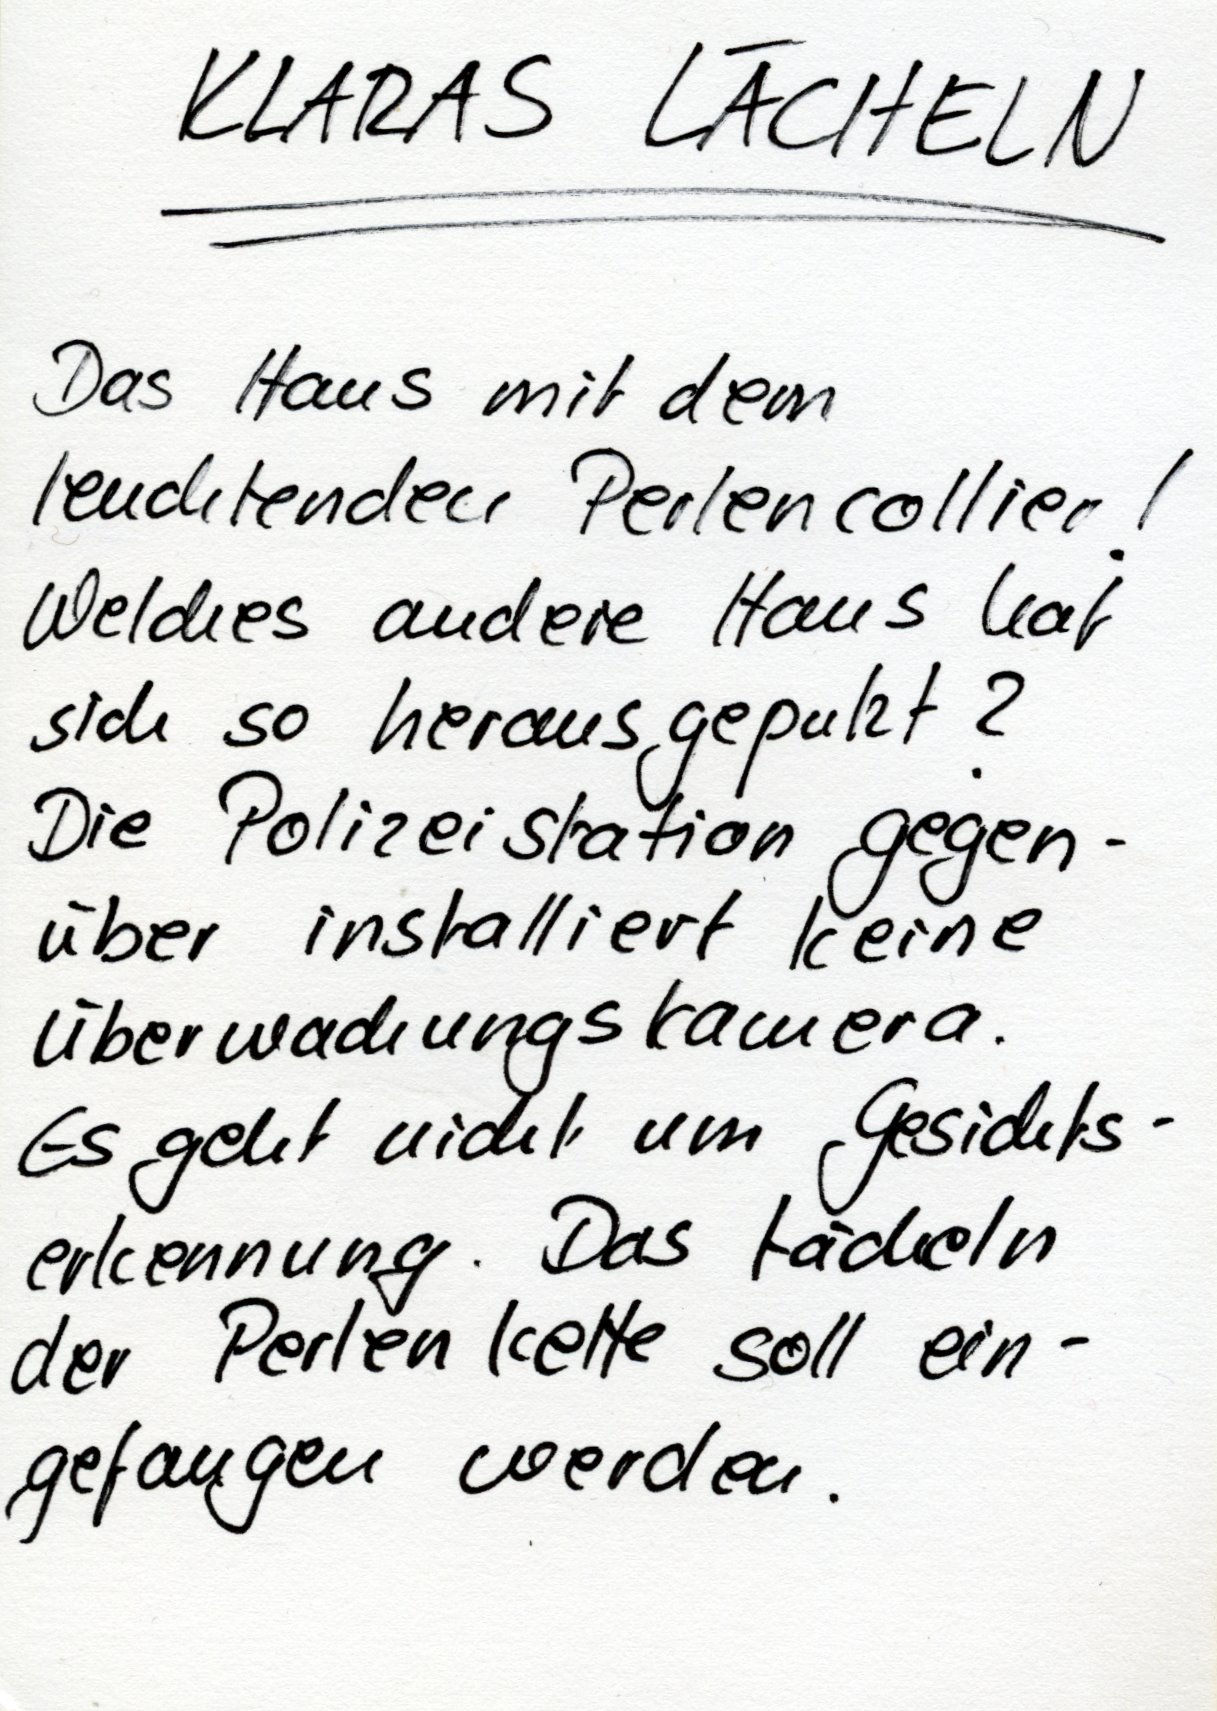 KLARAS LÄCHELN
Das Haus mit dem
leuchtenden Perlencollier!
Welches andere Haus hat
sich so herausgeputzt?
Die Polizeistation gegen-
über installiert keine
Überwachungskamera.
Es geht nicht um Gesichts-
erkennung. Das Lächeln
der Perlenkette soll ein-
gefangen werden.